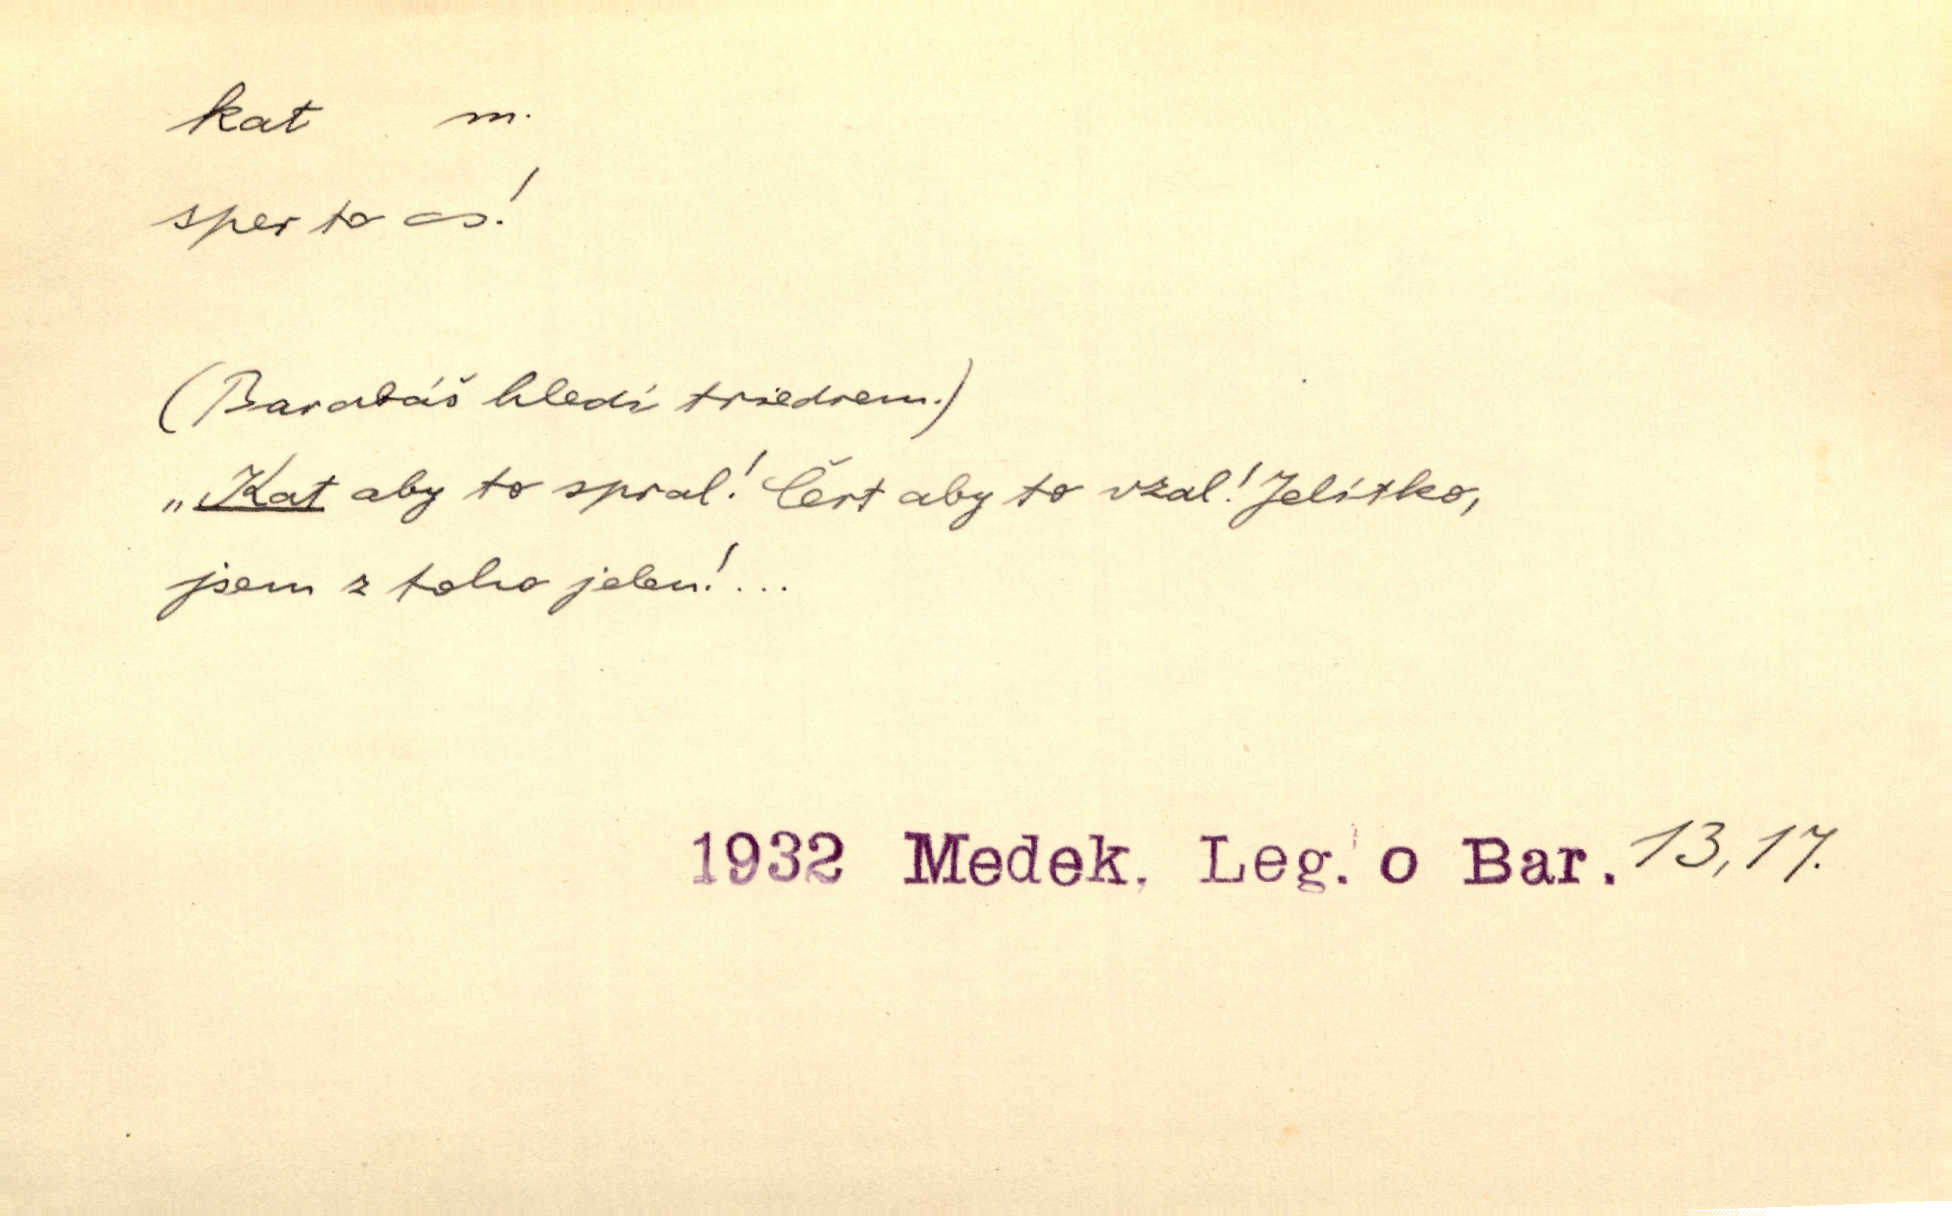 kat m.
sper to ∞!
(Barabáš hledí triedrem.)
„Kat aby to spral! Čert aby to vzal! Jelítko,
jsem z toho jelen!...
1932 Medek. Leg. o Bar. 13, 17.